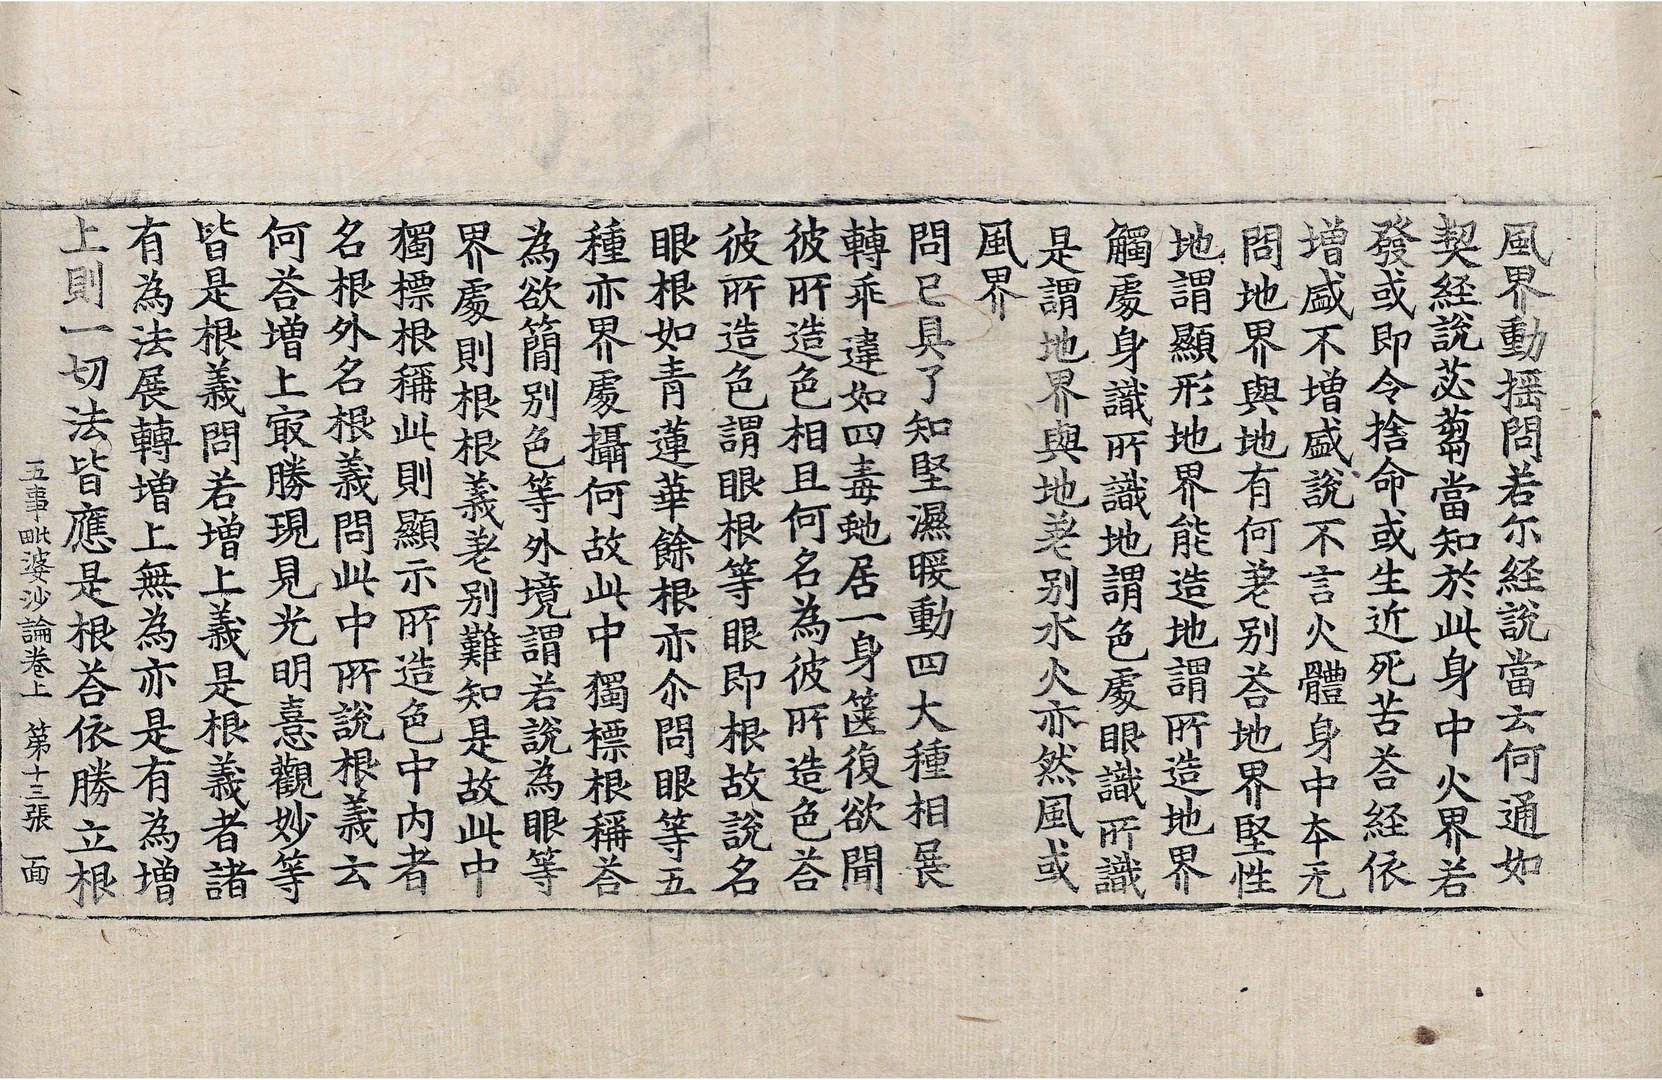 風界動揺問若尓経說當云何通如
契経說苾蒭當知於此身中火界若
發或即令捨命或生近死苦荅経依
增盛不增盛說不言火體身中夲无
問地界與地有何差别荅地界堅性
地謂顯形地界能造地謂所造地界
觸處身識所識地謂色處眼識所識
是謂地界與地差别水火亦然風或
風界
問已具了知堅濕暖動四大種相展
轉乖違如四毒虵居一身篋復欲聞
彼所造色相且何名為彼所造色荅
彼所造色謂眼根等眼即根故說名
眼根如青蓮華餘根亦尒問眼等五
種亦界處攝何故此中獨標根稱荅
為欲簡别色等外境謂若說為眼等
界處則根根義差别難知是故此中
獨標根稱此則顯示所造色中内者
名根外名根義問此中所說根義云
何荅增上㝡勝現見光明憙觀妙等
皆是根義問若增上義是根義者諸
有為法展轉增上無為亦是有為增
上則一切法皆應是根荅依勝立根
五事毗婆沙論卷上 第十三張 面